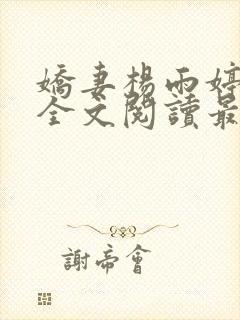 嬌妻楊雨婷
全文閱讀最
謝帝會